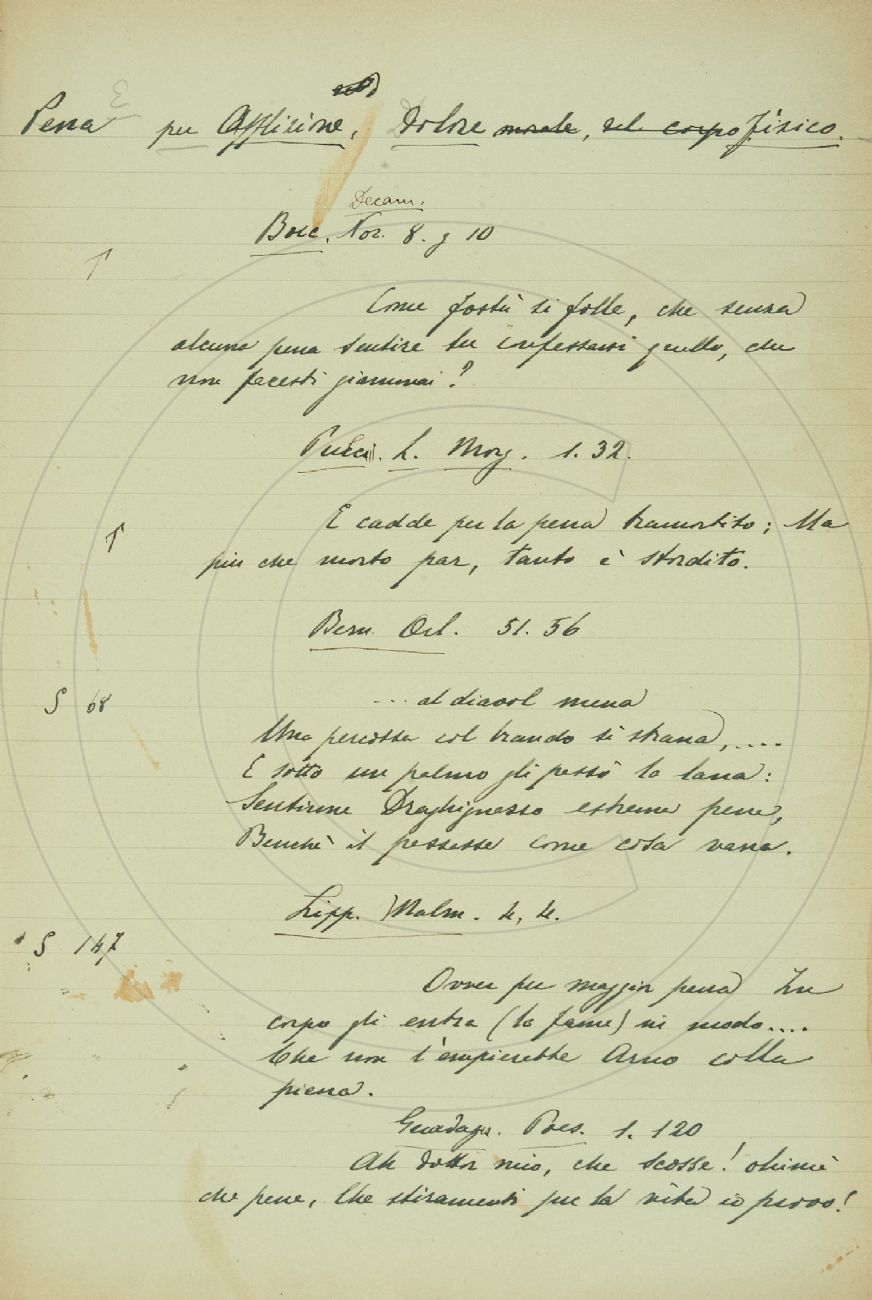 Pena per Afflizione, Dolore morale, del corpo fisico.
Decam.
Bocc. Nov. 8. g 10
Come fostù sì folle, che senza
alcuna pena sentire tu confessassi quello, che
non facesti giammai?
Pulci. L. Morg. 1. 32.
E cadde per la pena tramortito; Ma
più che morto par, tanto è stordito.
Bern Orl. 51. 56
S 68 ... al diavol mena
Una percossa col brando sì strana, ....
E sotto un palmo gli passò la lana:
Sentinne Draghignazzo estreme pene,
Benchè il passasse come cosa vana.
Lipp. Malm. 4, 4.
S 147
Ovver per maggior pena In
corpo gli entra (la fame) in modo....
Che non l'empierebbe Arno colla
piena.
Guadagn. Poes. 1. 120
Ah dottor mio, che scosse! ohimè
che pene, Che stiramenti per la vita io provo!